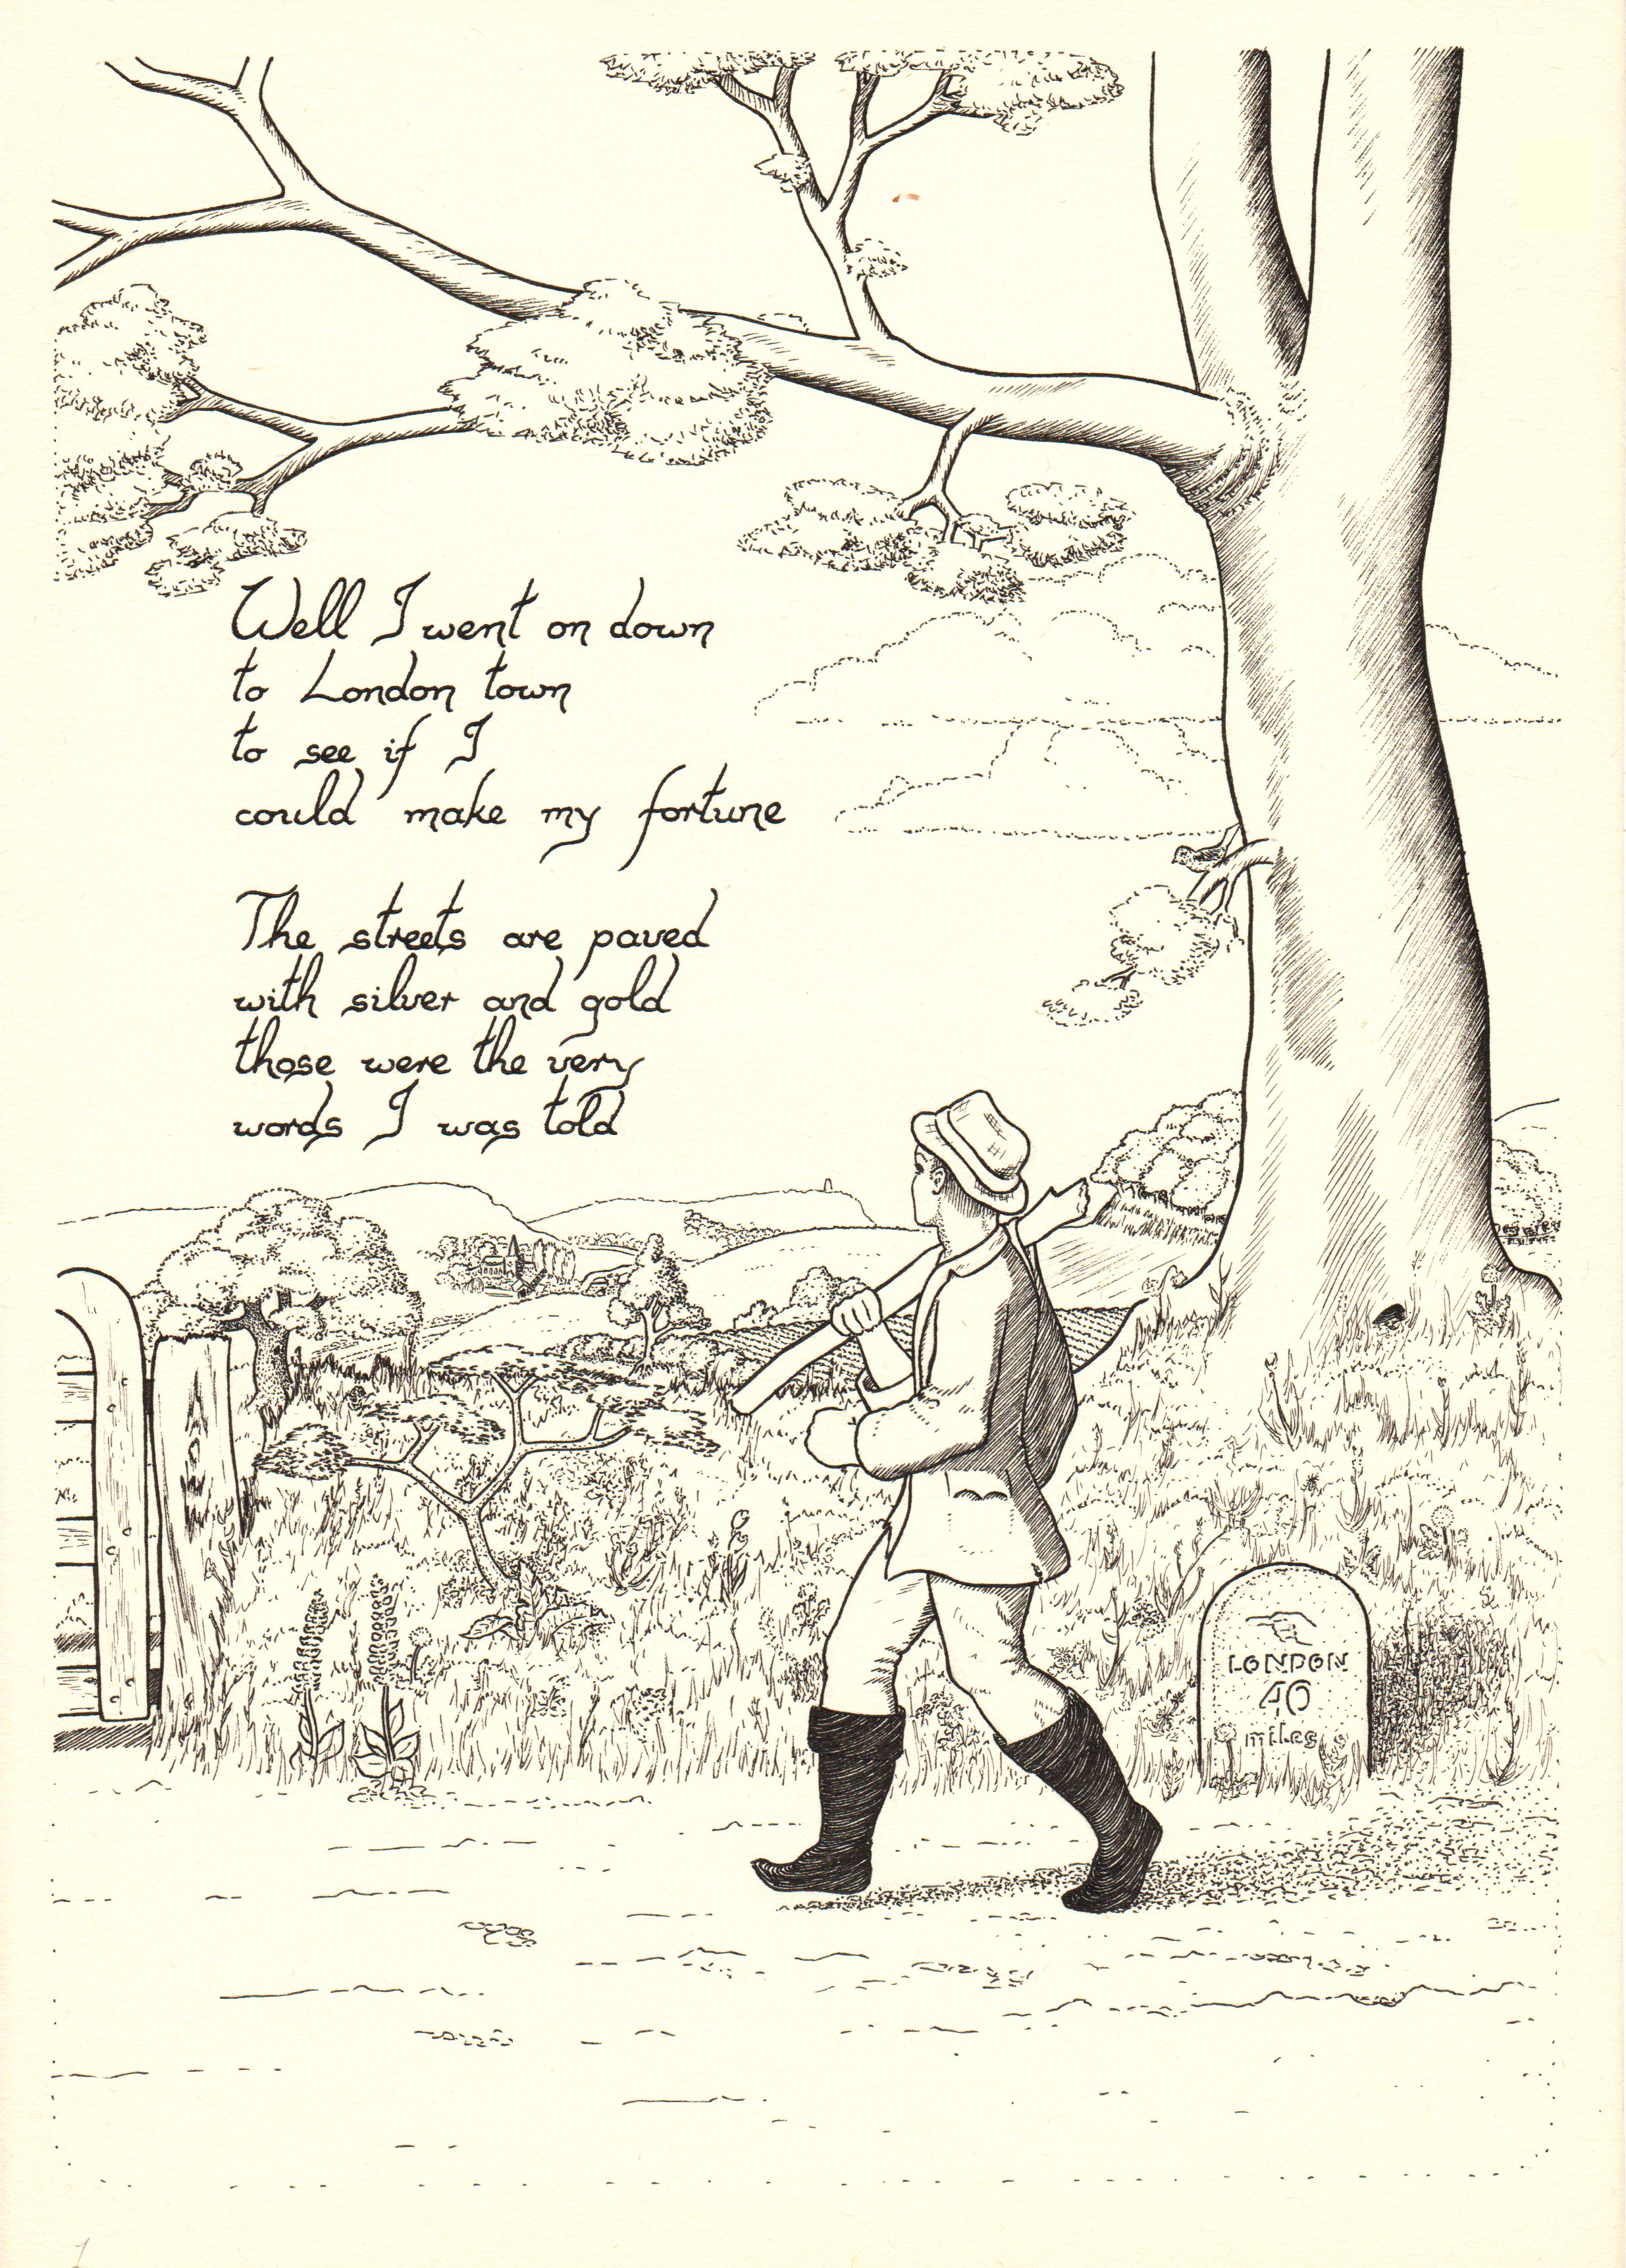 Well I went on down
to London town
to see if I
could make my fortune
The streets are paved
with silver and gold
those were the very
words I was told
LONDON
40
miles